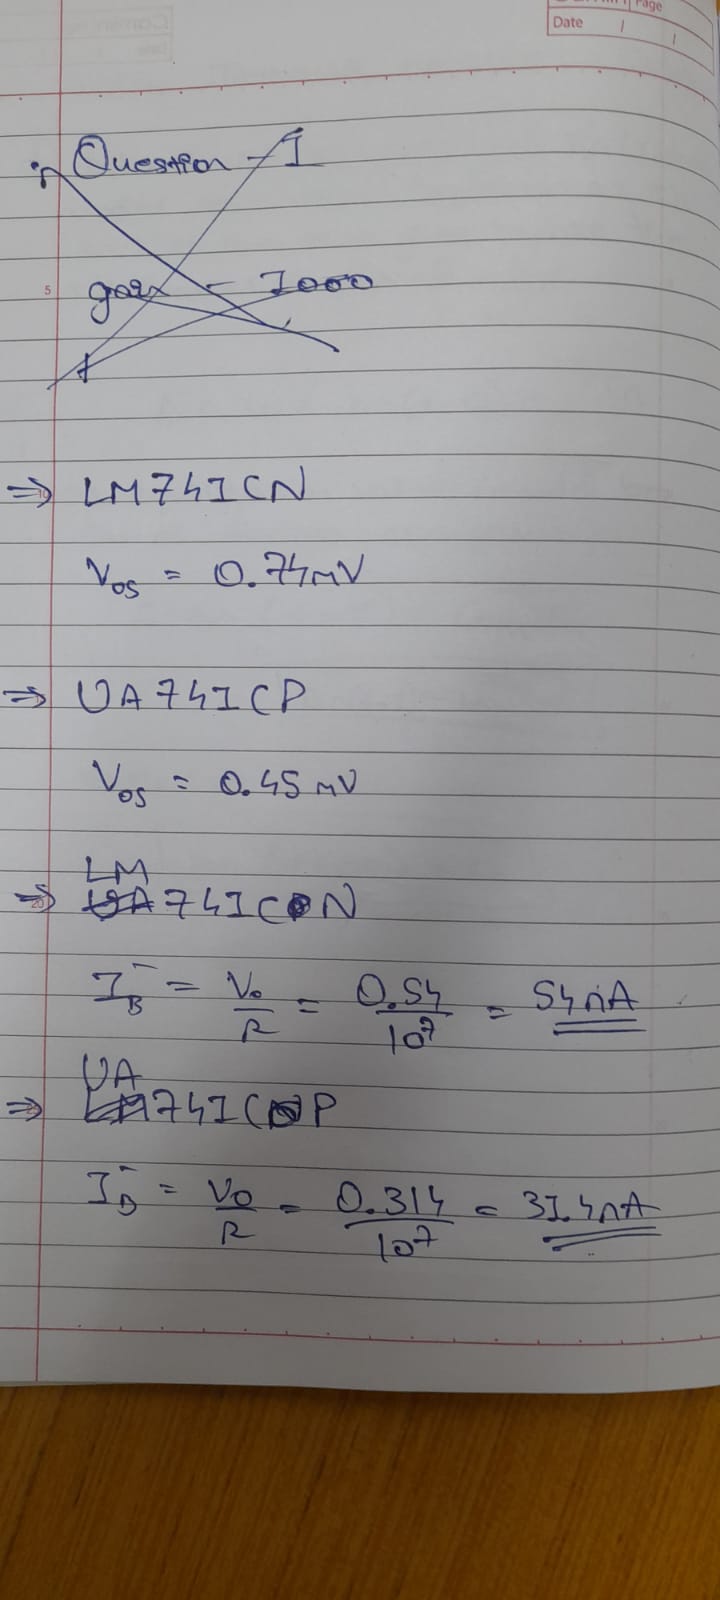 Page
Date / /
Question - 1
5 gain - 1000
⇒ LM741CN
10
Vos = 0.74mV
⇒ UA741CP
Vos = 0.45 mV
LM
⇒ 741CN
20
IB⁻ = Vo/R = 0.54/10⁷ = 54nA
UA
⇒ 741CP
IB⁻ = Vo/R = 0.314/10⁷ = 31.4nA